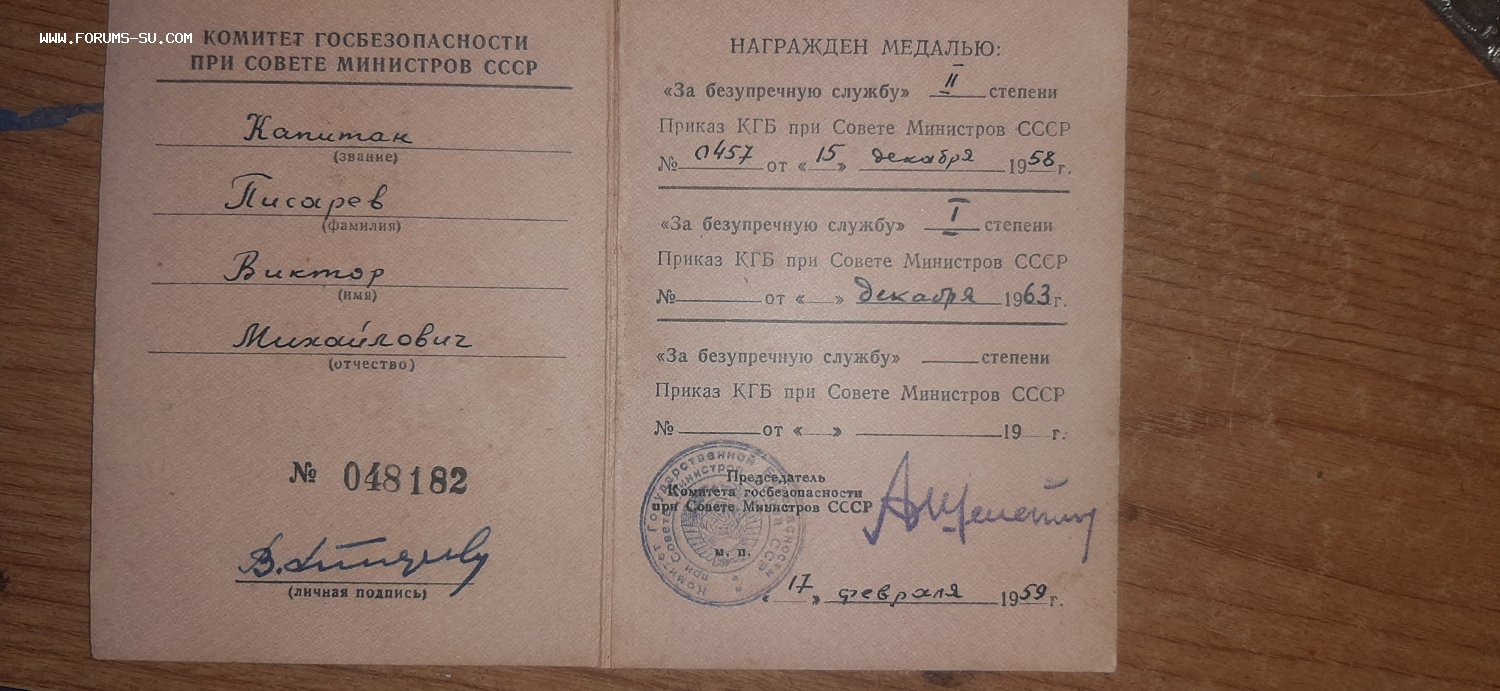 www.forums-su.com
КОМИТЕТ ГОСБЕЗОПАСНОСТИ
ПРИ СОВЕТЕ МИНИСТРОВ СССР
Капитан
(звание)
Писарев
(фамилия)
Виктор
(имя)
Михайлович
(отчество)
№ 048182
(личная подпись)
НАГРАЖДЕН МЕДАЛЬЮ:
«За безупречную службу» II степени
Приказ КГБ при Совете Министров СССР
№ 0457 от «15» декабря 1958 г.
«За безупречную службу» I степени
Приказ КГБ при Совете Министров СССР
№ от « » декабря 1963 г.
«За безупречную службу» степени
Приказ КГБ при Совете Министров СССР
№ от « » 19 г.
Председатель
Комитета госбезопасности
при Совете Министров СССР
А Шелепин
м. п.
«17» февраля 1959 г.
Комитет Государственной Безопасности
при Совете Министров СССР